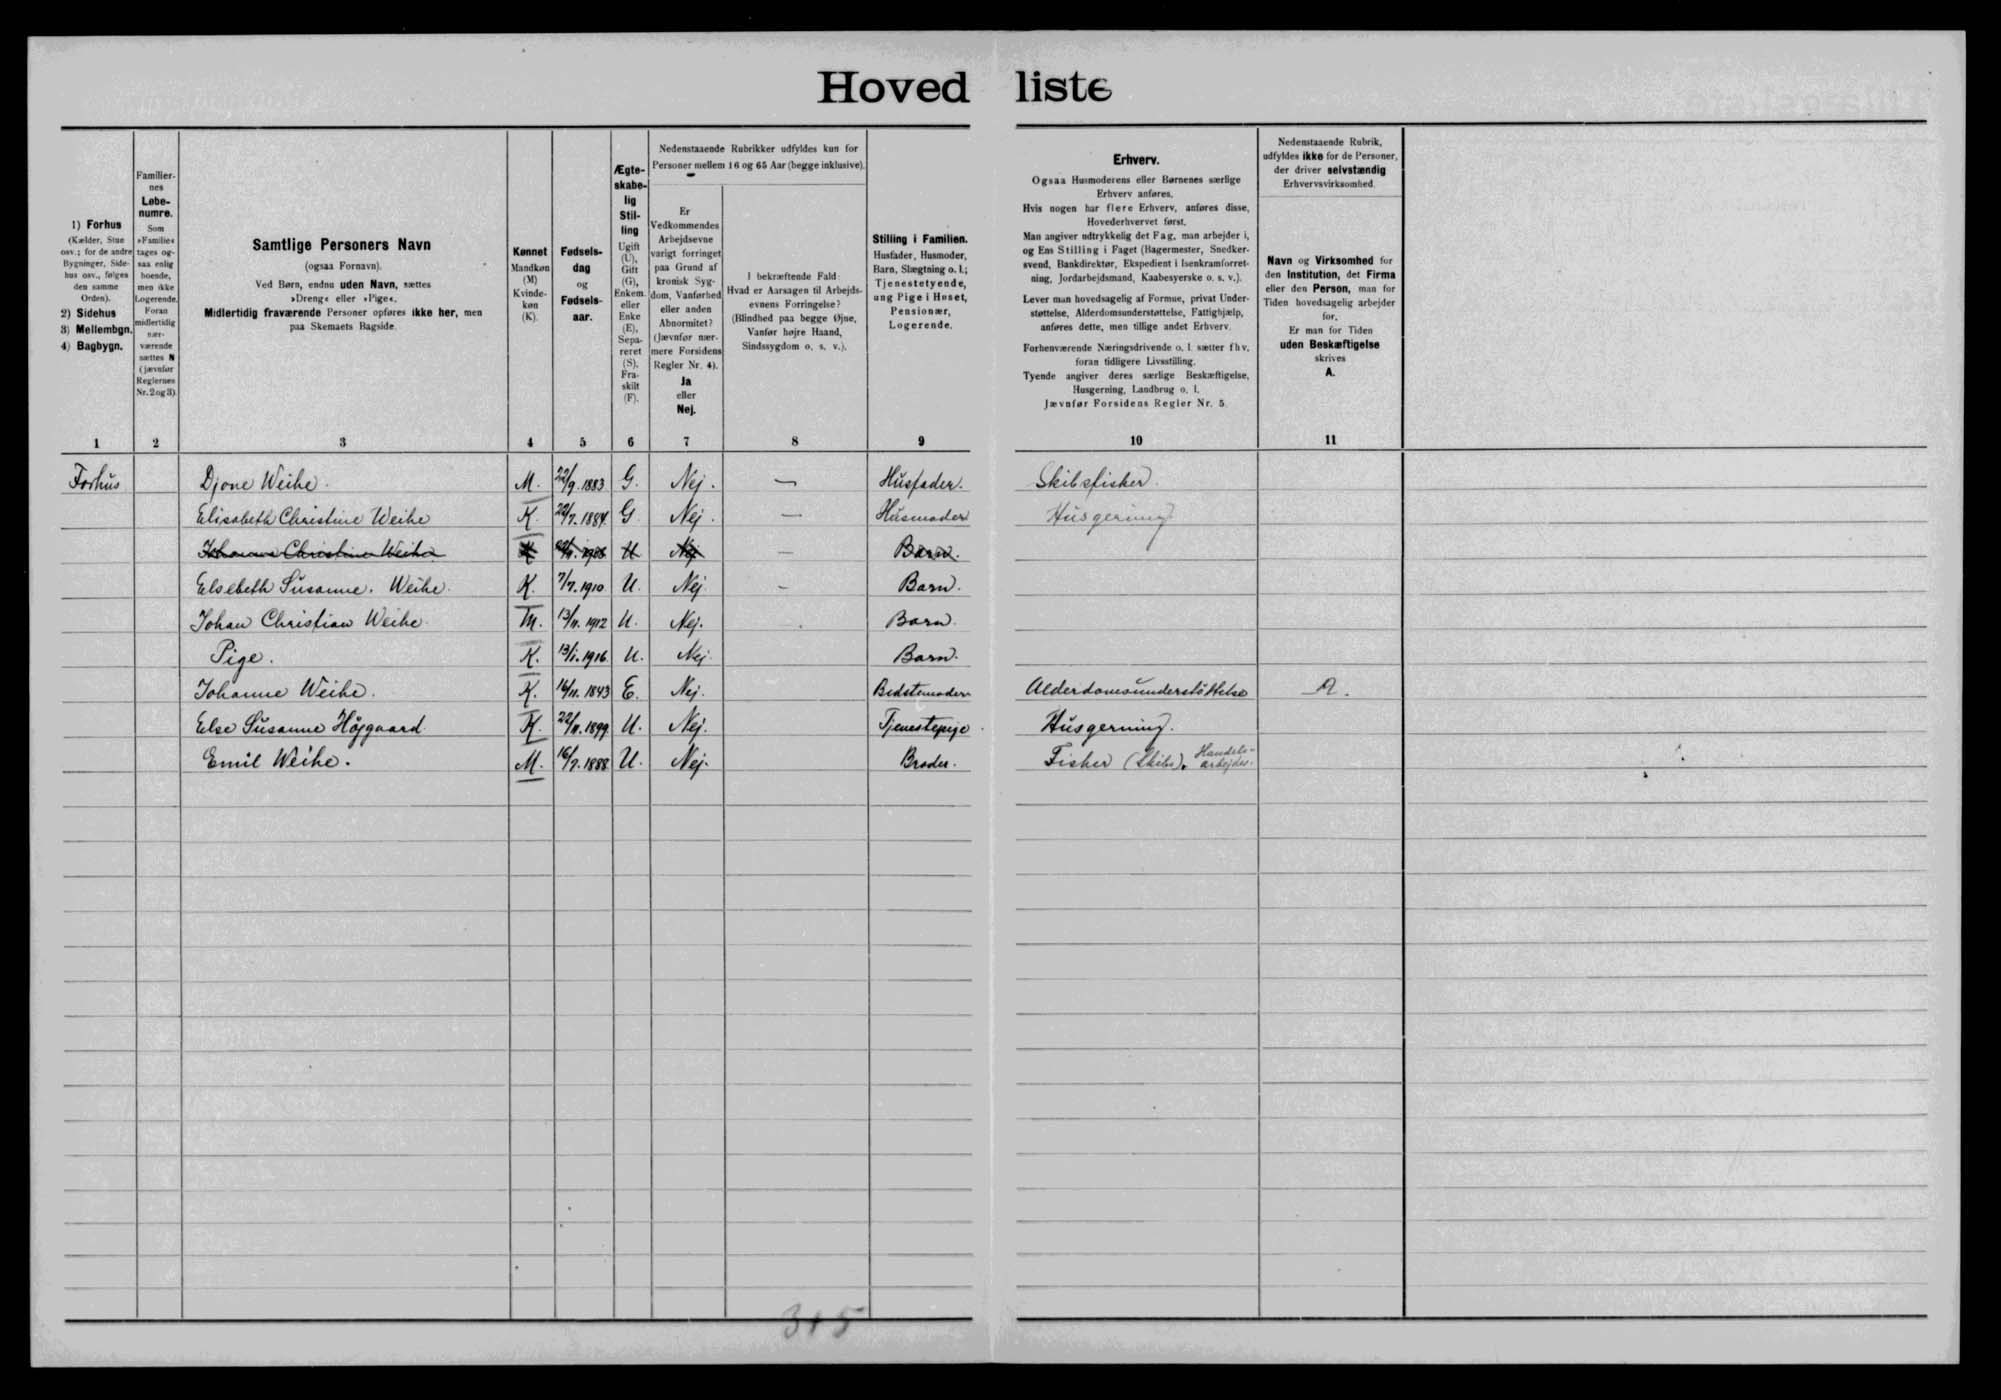 Hovedliste
1) Forhus
(Kælder, Stue
osv.; for de andre
Bygninger, Side-
hus osv., følges
den samme
Orden).
2) Sidehus
3) Mellembgn.
4) Bagbygn.
Familier-
nes
Løbe-
numre.
Som
»Familie«
tages og-
saa enlig
boende,
men ikke
Logerende.
Foran
midlertidig
nær-
værende
sættes N
(jævnfør
Reglernes
Nr. 2 og 3)
Samtlige Personers Navn
(ogsaa Fornavn).
Ved Børn, endnu uden Navn, sættes
»Dreng« eller »Pige«.
Midlertidig fraværende Personer opføres ikke her, men
paa Skemaets Bagside.
Kønnet
Mandkøn
(M)
Kvinde-
køn
(K).
Fødsels-
dag
og
Fødsels-
aar.
Ægte-
skabe-
lig
Stil-
ling
Ugift
(U),
Gift
(G),
Enkem.
eller
Enke
(E),
Sepa-
reret
(S),
Fra-
skilt
(F).
Nedenstaaende Rubrikker udfyldes kun for
Personer mellem 16 og 65 Aar (begge inklusive).
Er
Vedkommendes
Arbejdsevne
varigt forringet
paa Grund af
kronisk Syg-
dom, Vanførhed
eller anden
Abnormitet?
(Jævnfør nær-
mere Forsidens
Regler Nr. 4).
Ja
eller
Nej.
I bekræftende Fald:
Hvad er Aarsagen til Arbejds-
evnens Forringelse?
(Blindhed paa begge Øjne,
Vanfør højre Haand,
Sindssygdom o. s. v.).
Stilling i Familien.
Husfader, Husmoder,
Barn, Slægtning o. l.;
Tjenestetyende,
ung Pige i Huset,
Pensionær,
Logerende.
Erhverv.
Ogsaa Husmoderens eller Børnenes særlige
Erhverv anføres.
Hvis nogen har flere Erhverv, anføres disse,
Hovederhvervet først.
Man angiver udtrykkelig det Fag, man arbejder i,
og Ens Stilling i Faget (Bagermester, Snedker-
svend, Bankdirektør, Ekspedient i Isenkramforret-
ning, Jordarbejdsmand, Kaabesyerske o. s. v.).
Lever man hovedsagelig af Formue, privat Under-
støttelse, Alderdomsunderstøttelse, Fattighjælp,
anføres dette, men tillige andet Erhverv.
Forhenværende Næringsdrivende o. l. sætter fhv.
foran tidligere Livsstilling.
Tyende angiver deres særlige Beskæftigelse,
Husgerning, Landbrug o. l.
Jævnfør Forsidens Regler Nr. 5.
Nedenstaaende Rubrik,
udfyldes ikke for de Personer,
der driver selvstændig
Erhvervsvirksomhed.
Navn og Virksomhed for
den Institution, det Firma
eller den Person, man for
Tiden hovedsagelig arbejder
for.
Er man for Tiden
uden Beskæftigelse
skrives
A.
1 2 3 4 5 6 7 8 9 10 11
Forhus Djone Weihe. M. 22/9.1883 G. Nej. — Husfader. Skibsfisker.
Elisabeth Christine Weihe K. /7.1884. G Nej. — Husmoder Husgerning
Johanna Christina Weihe K U Nej — Barn.
Elsebeth Susanne. Weihe. K. 7/7.1910 U. Nej. – Barn.
Johan Christian Weihe. M. 13/11.1912 U. Nej. Barn.
Pige. K. 13/1.1916. U. Nej. Barn.
Johanne Weihe. K. 16/11.1843 E. Nej. Bedstemoder Alderdomsunderstöttelse A.
Else Susanne Höjgaard. K. 22/11.1899. U. Nej. Tjenestepige. Husgerning.
Emil Weihe. M. 16/7.1888. U. Nej. Broder. Fisker (Skibs). Handels-
arbejder.
3+5